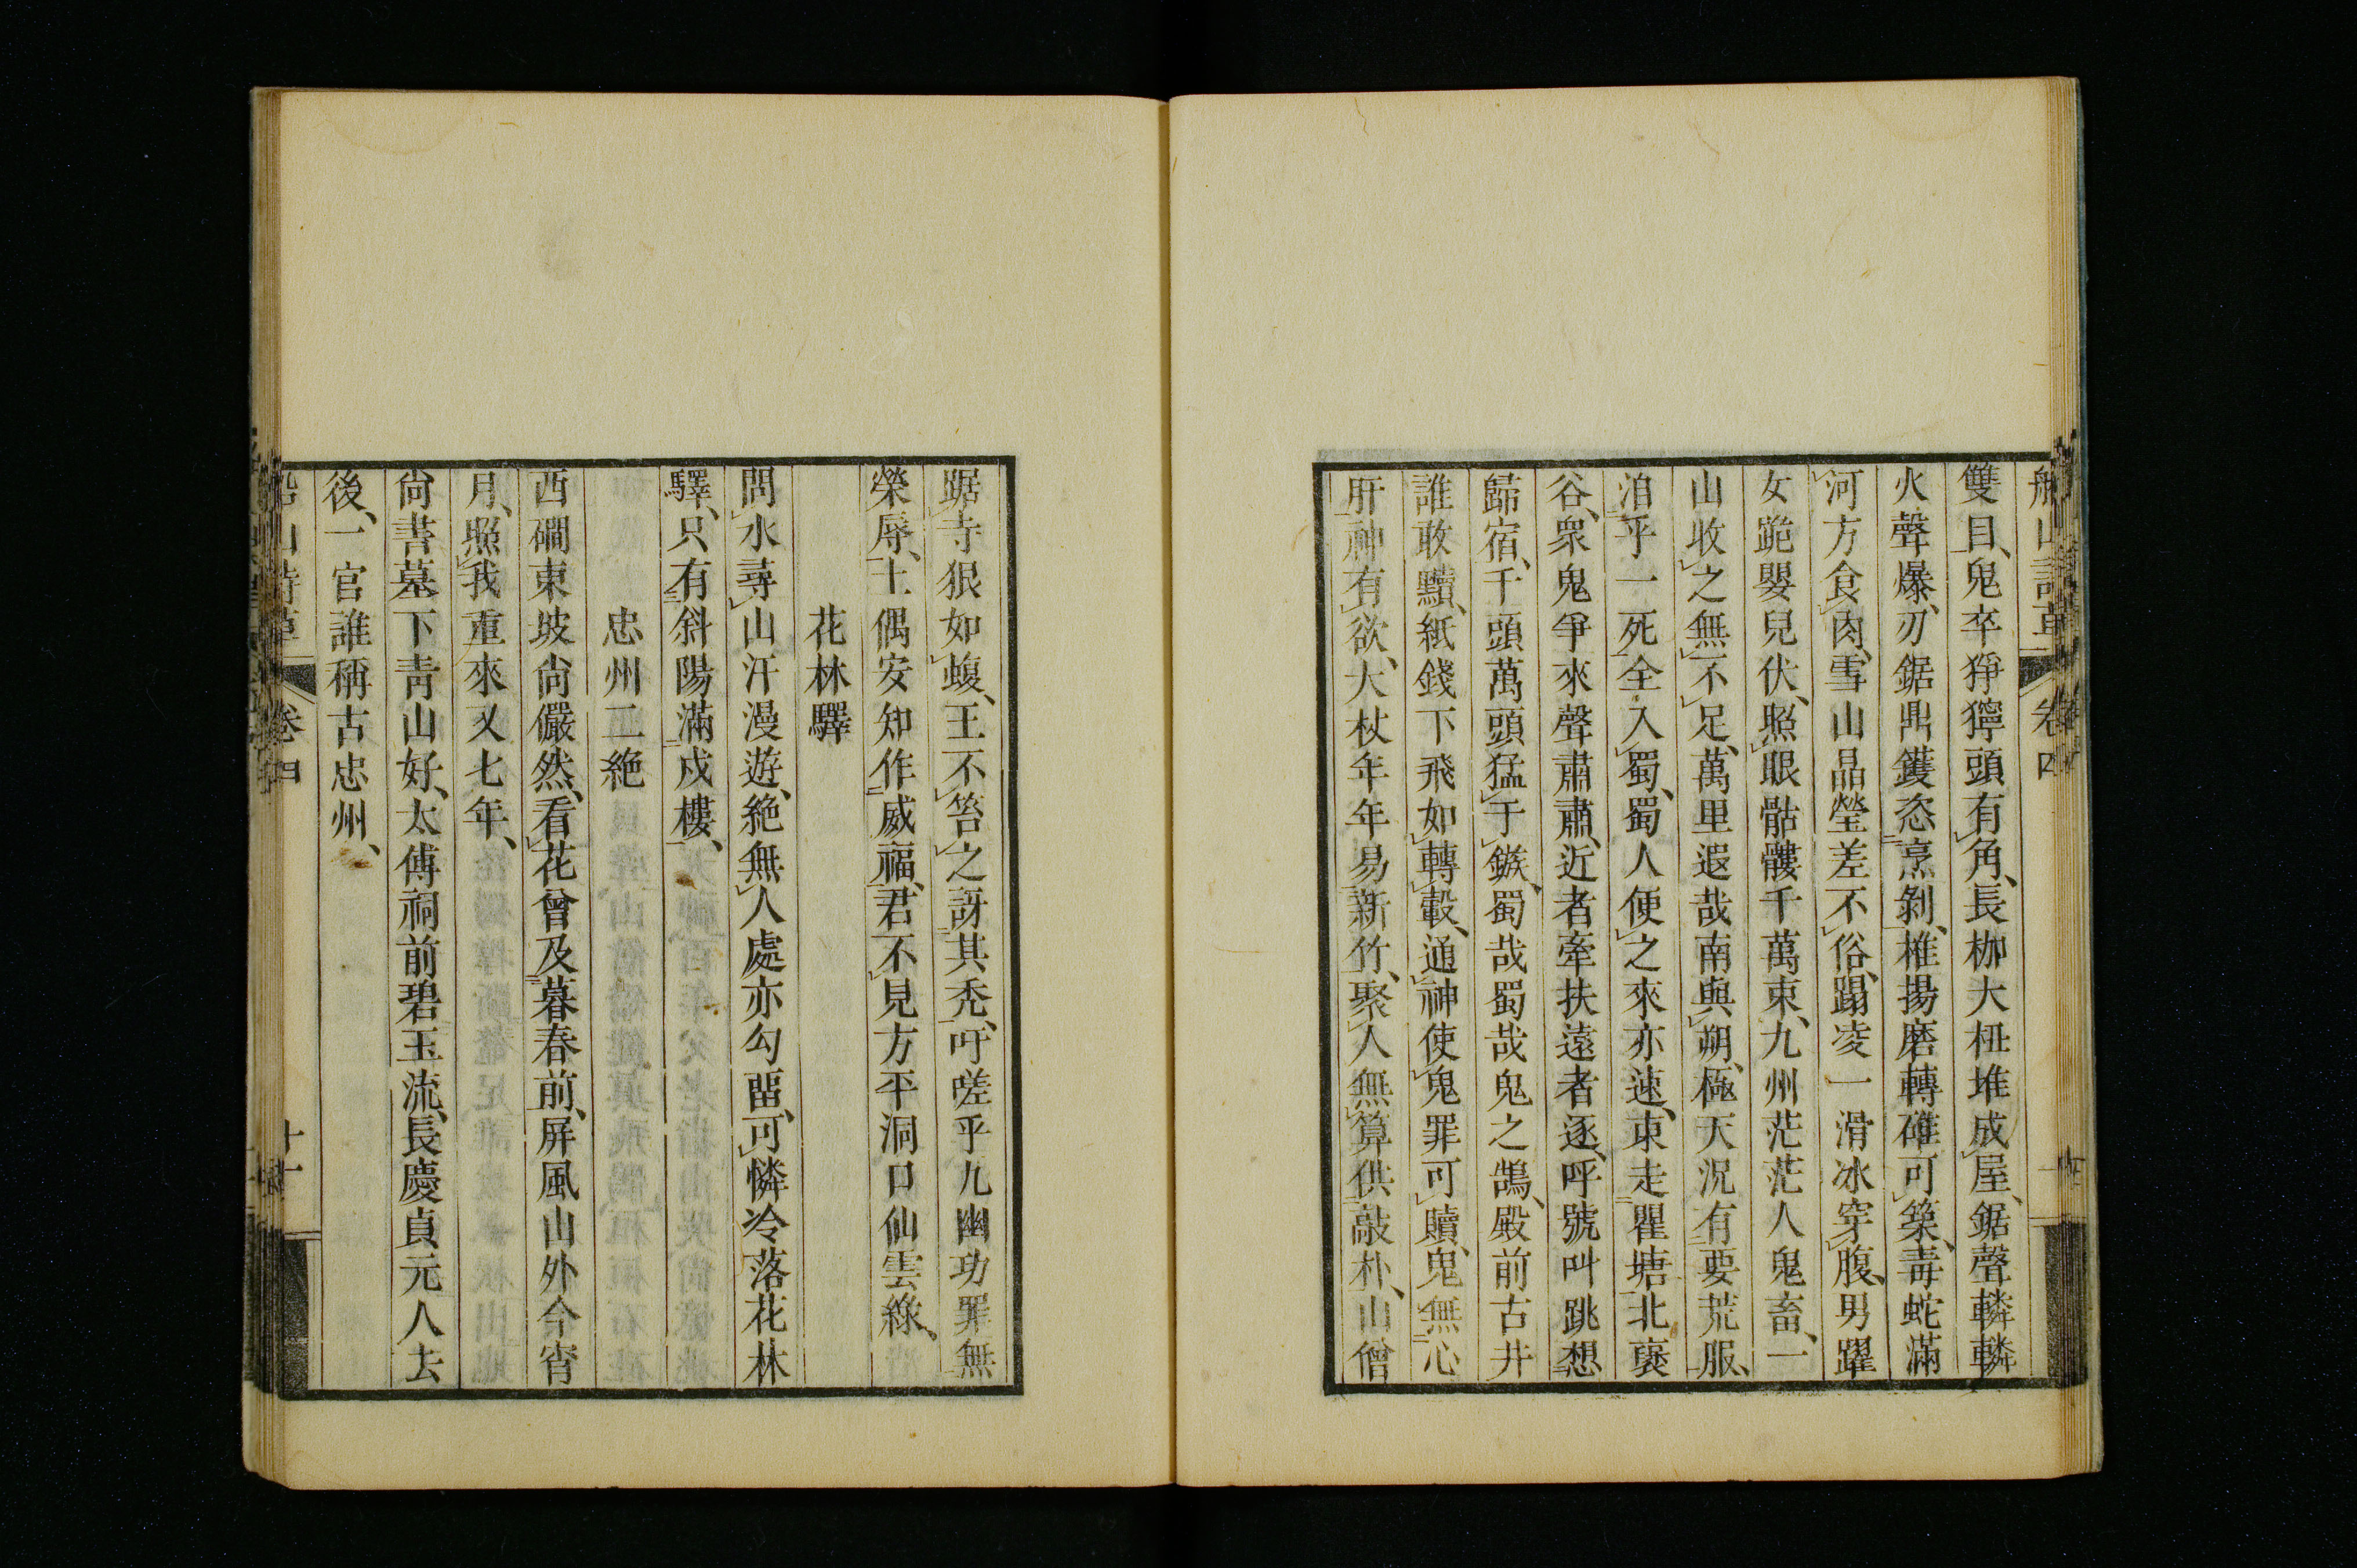 船山詩草 卷四
雙目、鬼卒猙獰頭有角、長枷大杻堆成屋、鋸聲轔轔
火聲爆、刃鋸鼎鑊恣烹剝、椎揚磨轉碓可築、毒蛇滿
河方食肉、雪山晶瑩差不俗、蹋凌一滑冰穿腹、男躍
女跪嬰兒伏、照眼骷髏千萬束、九州茫茫人鬼畜、一
山收之無不足、萬里遐哉南與朔、極天況有要荒服、
泊乎一死全入蜀、蜀人便之來亦速、東走瞿塘北褒
谷、衆鬼爭來聲肅肅、近者牽扶遠者逐、呼號叫跳想
歸宿、千頭萬頭猛于鏃、蜀哉蜀哉鬼之鵠、殿前古井
誰敢黷、紙錢下飛如轉轂、通神使鬼罪可贖、鬼無心
肝神有欲、大杖年年易新竹、聚人無算供敲朴、山僧
踞寺狠如蝮、王不笞之訝其禿、吁嗟乎九幽功罪無
榮辱、土偶安知作威福、君不見方平洞口仙雲綠、
花林驛
問水尋山汗漫遊、絶無人處亦勾畱、可憐冷落花林
驛、只有斜陽滿戍樓、
忠州二絶
西磵東坡尙儼然、看花曾及暮春前、屏風山外今宵
月、照我重來又七年、
尙書墓下青山好、太傅祠前碧玉流、長慶貞元人去
後、一官誰稱古忠州、
船山詩草 卷四 十一